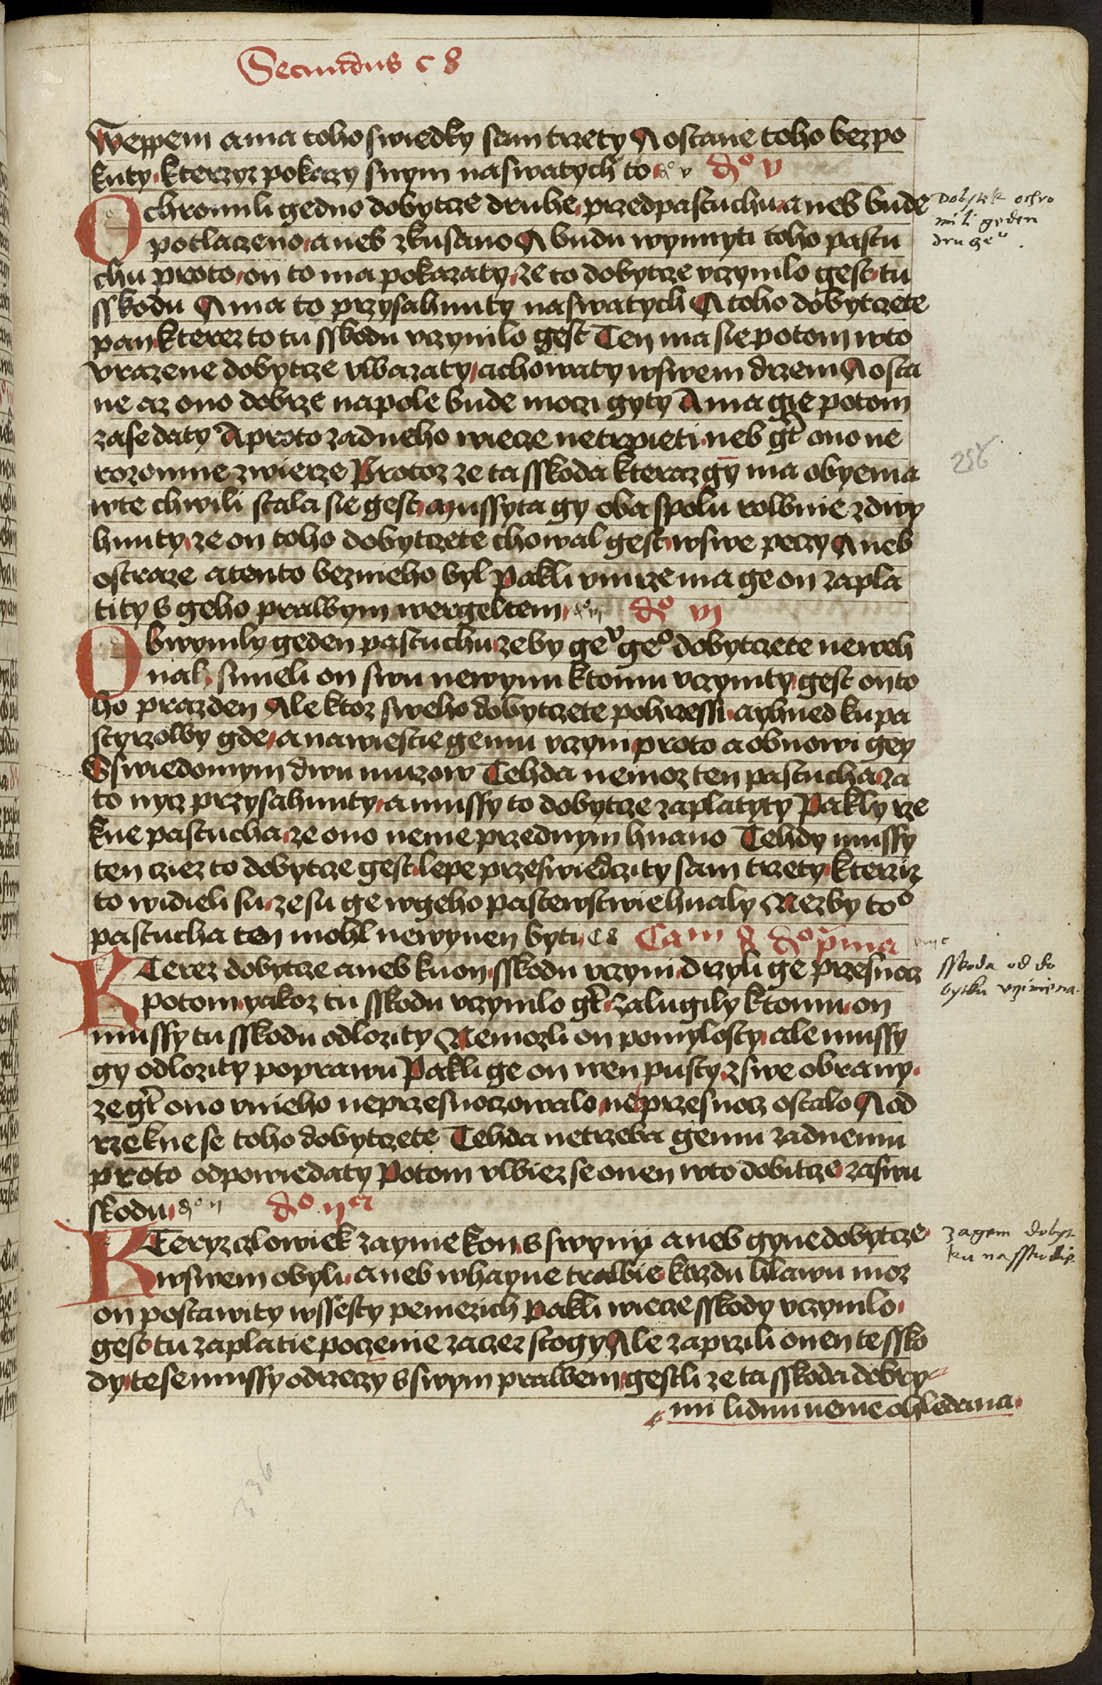 Secundus c 8
Wepṙem a ma toho swiedky sam trzety A ostane toho bez po
kuty kterzyz pokazy swym na swatych to d͞o v
Ochromili gedno dobytcze druhe przed pastuchu aneb bude
potlaczeno aneb zkusano A budu wynnyti toho pastu
chu proto on to ma pokazaty ze to dobytcze vczynilo gest tu
sskodu A ma to przysahnuty na swatych A toho dobytczete
pan kterez to tu sskodu vczynilo gest Ten ma sie potom w to
vrazene dobytcze vwazaty a chowaty w swem drzeni A osta
ne az ono dobrze na pole bude moczi gyty A ma gie potom
zase daty A proto zadneho wiecze netrpieti neb g͞t ono ne
rozomne zwierze Protoz ze ta sskoda kteraz gy ma obyema
w te chwili stala sie gest mussyta gy oba spolu rownie zdwy
hnuty ze on toho dobytczete chowal gest w swe peczy Aneb
ostraze a tento bez nieho byl Pakli vmrze ma ge on zapla
tity s geho prawym wergeltem d͞o vi
Obwynily geden pastuchu ze by ge° ge° dobytczete neweh
nal smieli on swu newynu ktomu vczynity gest on to
ho prazden Ale ktoz sweho dobytczete pohrzessi a yhned ku pa
styrzowy gde a na wiestie gemu vczyni proto a obnowi gey
S swiedomym dwu muzow Tehda nemoz ten pastucha za
to nycz przysahnuty a mussy to dobytcze zaplatyty Pakly rze
kne pastucha ze ono nenie przed nym hnano Tehdy mussy
ten ciez to dobytcze gest lepe przeswiedczity sam trzety kterziz
to widieli su ze su ge w geho pastewstwie hnaly Nez by to°
pastucha ten mohl newynen byti c 8 Cam 8 d͞o prima
Kterez dobytcze aneb kuon sskodu vczyni drzyli ge przes nocz
potom yakoz tu sskodu vczynilo g͞t zalugily ktomu on
mussy tu sskodu odlozity Nemozli on pomylosty ale mussy
gy odlozity poprawu Pakli ge on wen pusty z swe obrany
ze g͞t ono v nieho neprzesnoczowalo ne przes nocz ostalo A od
rzekne se toho dobytczete Tehda netrzeba gemu zadnemu
proto odpowiedaty Potom vwiez se onen w to dobitcze za swu
skodu d͞o ii d͞o ii a
Kteryz czlowiek zaynie kon s swyny aneb gyne dobytcze
w swem obyli aneb w hayne trawie kazdu hlawu moz
on postawity w ssesty peniezich Pakli wiecze sskody vczynilo
gest tu zaplatie poczenie zaczez stogy Ale zaprzili onen te ssko
dy te se mussy odrzeczy s swym prawem gestli ze ta sskoda dobry
mi lidmi nenie ohledana
Dobytek ochro
mili geden
druge°
256
sskoda od do
bytku vcinena
zagem dobyt
ku na sskodie
336